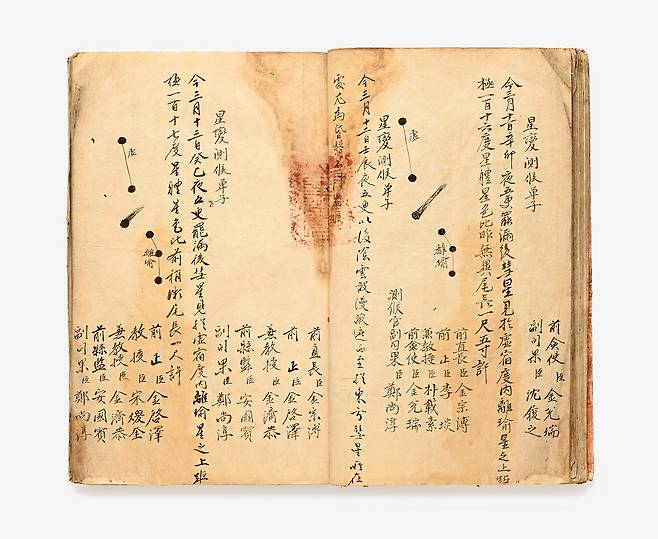 星變測候單子
前僉使臣金兌瑞
副司果臣沈復之
今三月十一日辛卯夜五更罷漏後彗星見於虛宿度內離瑜星之上距
極一百十六度星體星色比昨無異尾長一尺五寸許
離瑜
虛
前直長臣金宗溥
前正臣李埮
兼教授臣朴載素
前僉使臣金兌瑞
測候官副司果臣鄭尚淳
星變測候單子
今三月十二日壬辰夜五更以後陰雲散漫西至於東方彗星所在
處尤為昏翳
前直長臣金宗溥
前正臣金啓澤
兼教授臣金濟恭
前縣監臣安國賓
副司果臣鄭尚淳
星變測候單子
今三月十三日癸巳夜五更罷漏後彗星見於虛宿度內離瑜星之上距
極一百十七度星體星色比前稍微尾長一尺許
虛
離瑜
前正臣金啓澤
教授臣宋
兼教授臣金濟恭
前縣監臣安國賓
副司果臣鄭尚淳